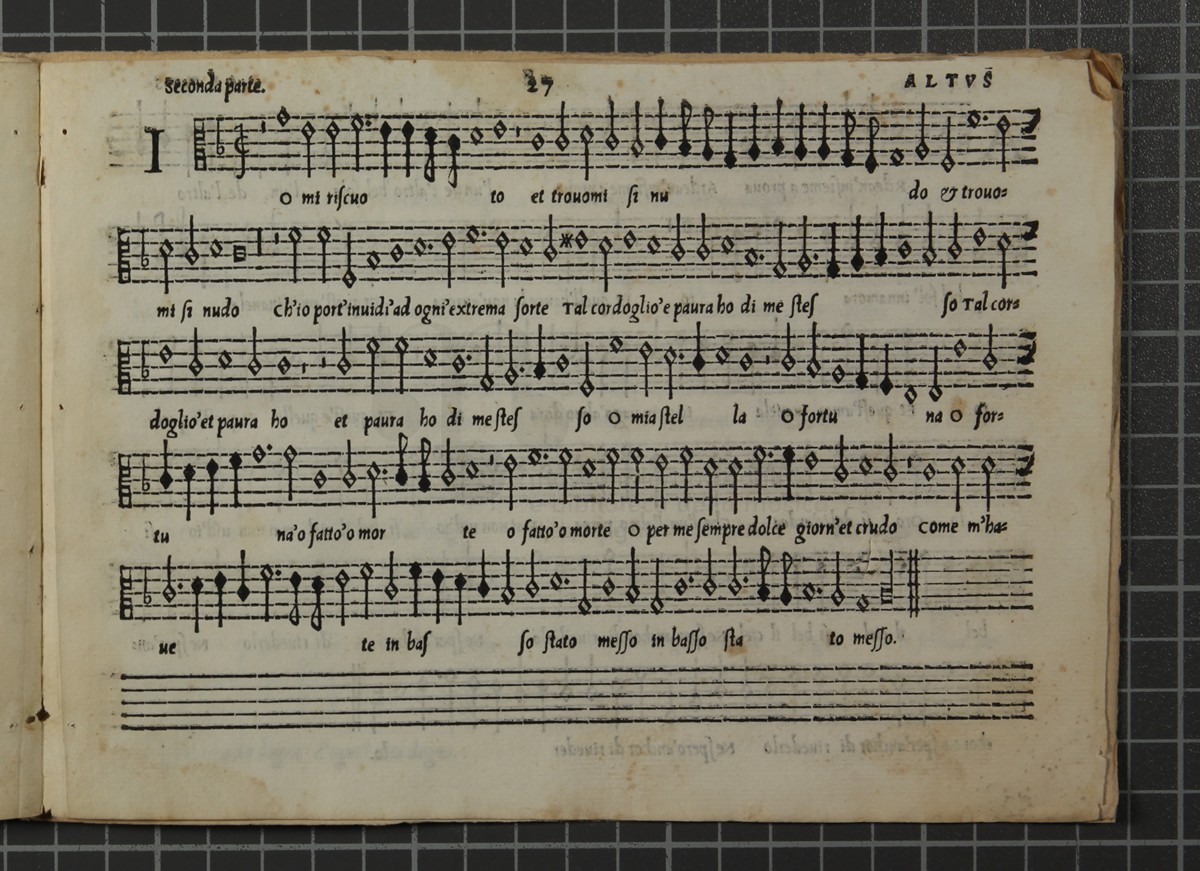 Seconda parte. 27 ALTVS
I O mi riscuo to et trouomi si nu do & trouo=
mi si nudo Ch'io port'inuidi'ad ogni'extrema sorte Tal cordoglio'e paura ho di me stes so Tal cor=
doglio'et paura ho et paura ho di me stes so O mia stel la O fortu na O for=
tu na'o fatto'o mor te o fatto'o morte O per me sempre dolce giorn'et crudo Come m'ha=
ue te in bas so stato messo in basso sta to messo.